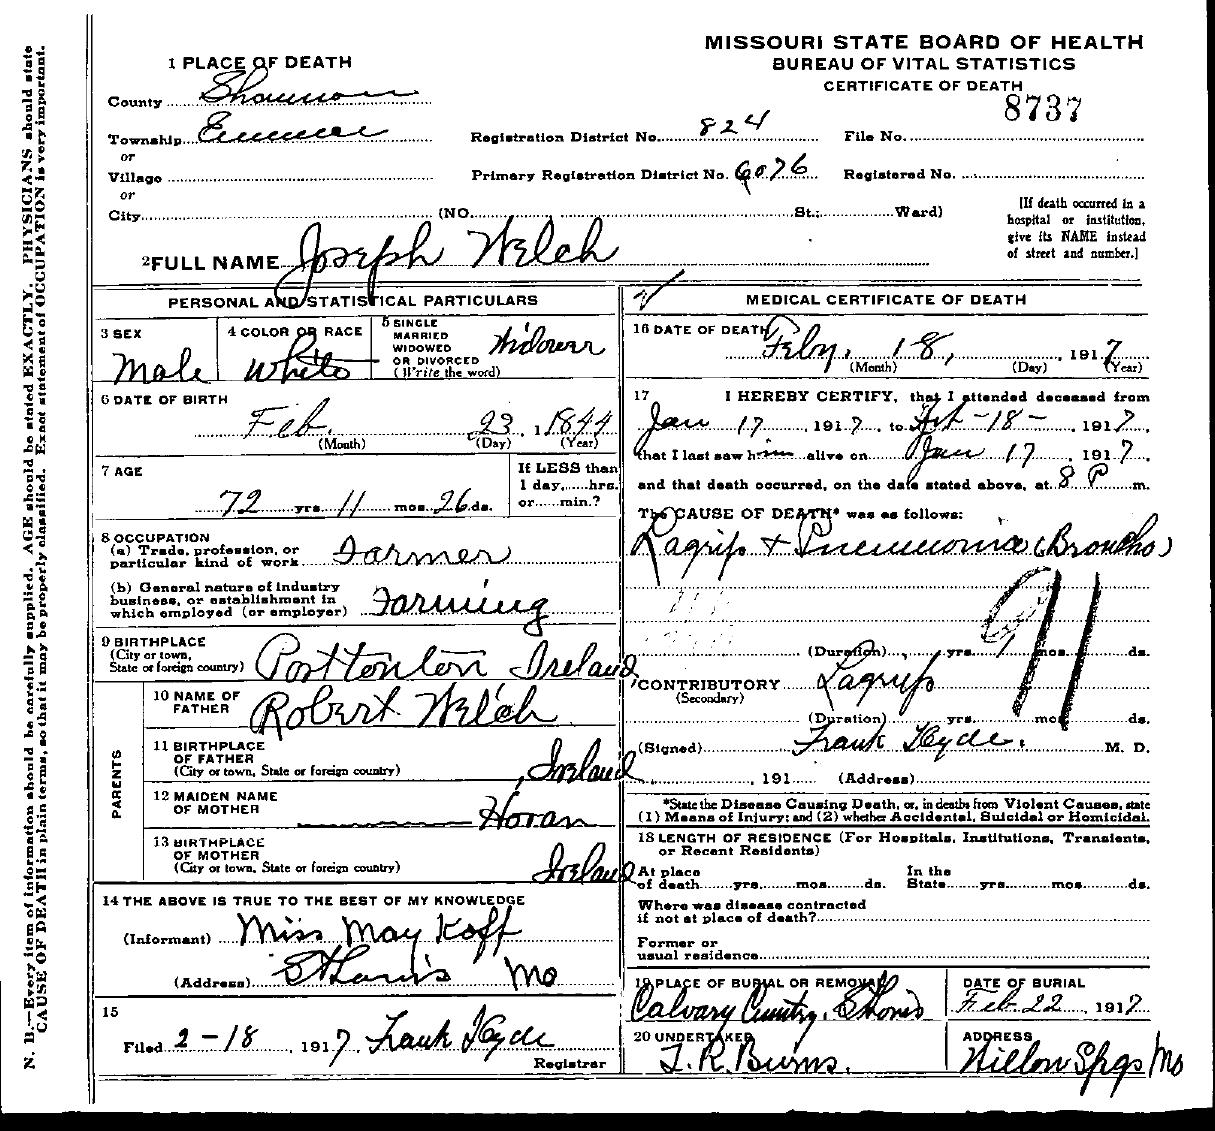 MISSOURI STATE BOARD OF HEALTH
BUREAU OF VITAL STATISTICS
CERTIFICATE OF DEATH
8737
1 PLACE OF DEATH
County Shannon
Township
or
Village
or
City (NO. St.; Ward)
Registration District No. 824
Primary Registration District No. 6076
File No.
Registered No.
[If death occurred in a
hospital or institution,
give its NAME instead
of street and number.]
2 FULL NAME Joseph Welch
PERSONAL AND STATISTICAL PARTICULARS
3 SEX
Male
4 COLOR OR RACE
White
5 SINGLE
MARRIED
WIDOWED
OR DIVORCED
(Write the word)
Widower
6 DATE OF BIRTH
Feb. 23, 1844
(Month) (Day) (Year)
7 AGE
72 yrs. 11 mos. 26 ds.
If LESS than
1 day, hrs.
or min.?
8 OCCUPATION
(a) Trade, profession, or
particular kind of work Farmer
(b) General nature of industry
business, or establishment in
which employed (or employer) Farming
9 BIRTHPLACE
(City or town,
State or foreign country) Ireland
PARENTS
10 NAME OF
FATHER Robert Welch
11 BIRTHPLACE
OF FATHER
(City or town, State or foreign country) Ireland
12 MAIDEN NAME
OF MOTHER Horan
13 BIRTHPLACE
OF MOTHER
(City or town, State or foreign country) Ireland
14 THE ABOVE IS TRUE TO THE BEST OF MY KNOWLEDGE
(Informant) Miss May Koff
(Address) St Louis Mo
15
Filed 2-18, 1917, Frank Hyde
Registrar
MEDICAL CERTIFICATE OF DEATH
16 DATE OF DEATH
Feby. 18, 1917
(Month) (Day) (Year)
17 I HEREBY CERTIFY, that I attended deceased from
Jan 17, 1917, to Feb-18-, 1917,
that I last saw him alive on Jan 17, 1917,
and that death occurred, on the date stated above, at 8 P m.
The CAUSE OF DEATH* was as follows:
Lagrip + Pneumonia (Broncho)
91
(Duration) yrs. mos. ds.
CONTRIBUTORY Lagrip
(Secondary)
(Duration) yrs. mos. ds.
(Signed) Frank Hyde. M. D.
, 191 (Address)
*State the Disease Causing Death, or, in deaths from Violent Causes, state
(1) Means of Injury; and (2) whether Accidental, Suicidal or Homicidal.
18 LENGTH OF RESIDENCE (For Hospitals, Institutions, Transients,
or Recent Residents)
At place In the
of death yrs. mos. ds. State yrs. mos. ds.
Where was disease contracted
if not at place of death?
Former or
usual residence
19 PLACE OF BURIAL OR REMOVAL
Calvary St Louis
DATE OF BURIAL
Feb. 22, 1917
20 UNDERTAKER
T. R. Burns.
ADDRESS
Willow Spgs Mo
N. B.—Every item of information should be carefully supplied. AGE should be stated EXACTLY. PHYSICIANS should state
CAUSE OF DEATH in plain terms, so that it may be properly classified. Exact statement of OCCUPATION is very important.